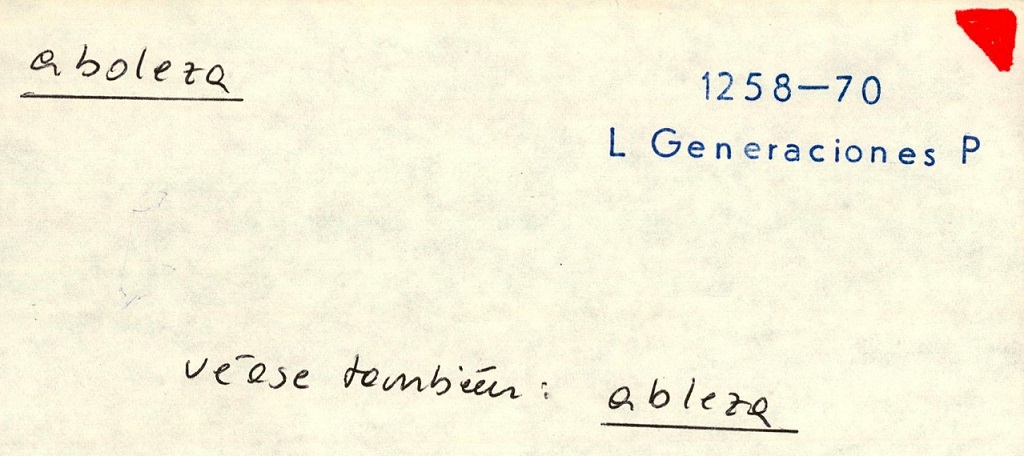 aboleza
1258—70
L Generaciones P
véase también: ableza